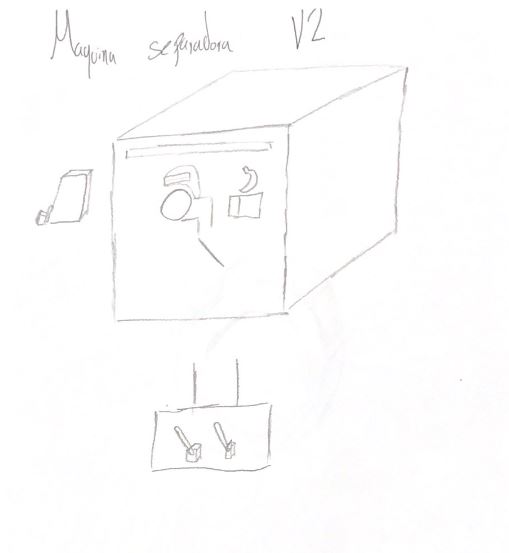 Maquina separadora V2